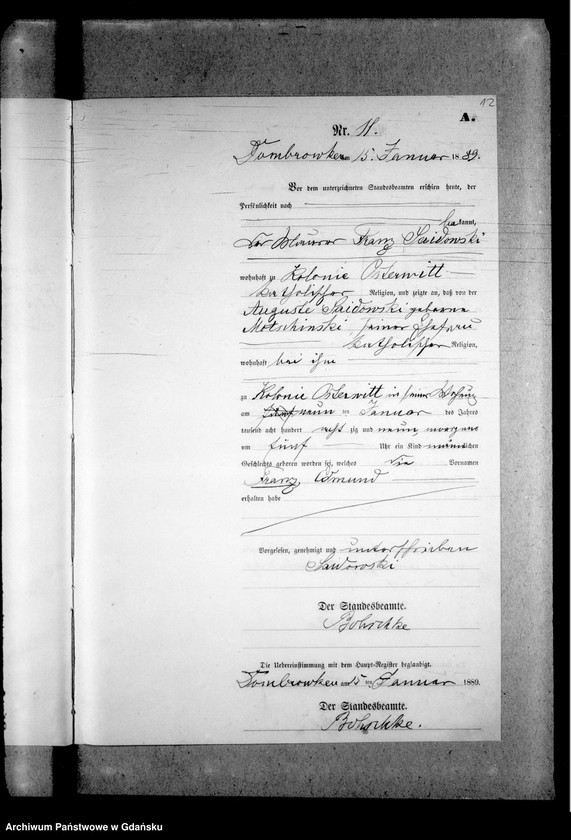 12
A.
Nr. 11.
Dombrowken am 15. Januar 1889.
Vor dem unterzeichneten Standesbeamten erschien heute, der
Persönlichkeit nach
bekannt,
der Maurer Franz Saidowski
wohnhaft zu Kolonie Osterwitt
katholischer Religion, und zeigte an, daß von der
Auguste Saidowski geborene
Motschinski, seiner Ehefrau
katholischer Religion,
wohnhaft bei ihm
zu Kolonie Osterwitt in seiner Wohnung
am fünf neun ten Januar des Jahres
tausend acht hundert acht zig und neun morgens
um fünf Uhr ein Kind männlichen
Geschlechts geboren worden sei, welches die Vornamen
Franz, Edmund
erhalten habe
Vorgelesen, genehmigt und unterschrieben
Saidowski
Der Standesbeamte.
Bohschke
Die Uebereinstimmung mit dem Haupt-Register beglaubigt.
Dombrowken am 15 ten Januar 1889.
Der Standesbeamte.
Bohschke.
Archiwum Państwowe w Gdańsku